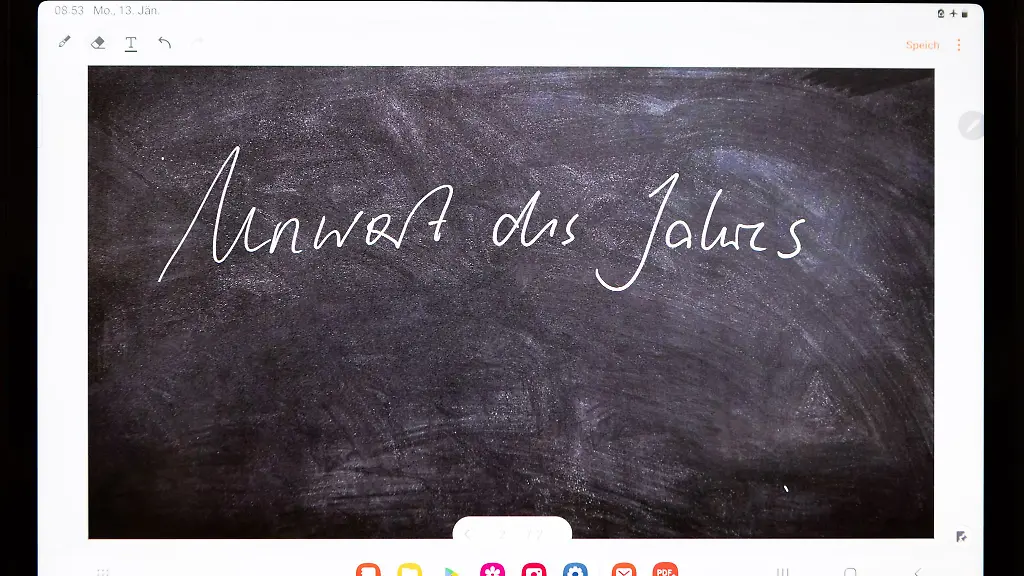 08:53 Mo., 13. Jän.
T
Speich
Unwort des Jahres
PDF